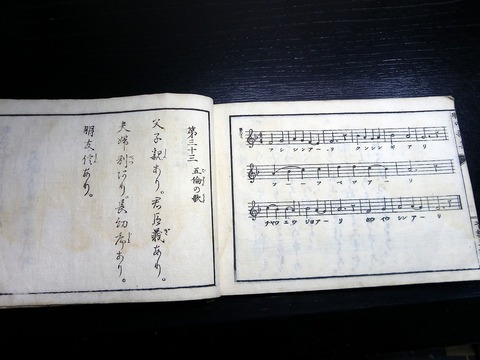 フ シ シンアーリ クンシンギ ア リ
フ ー フ ベツ ア ー リ
チヤウ エウ ジヨア ー リ ホウ イウ シン ア ー リ
第三十三 五倫の歌
父子親あり。君臣義あり。
夫婦別あり。長幼序あり。
朋友信あり。